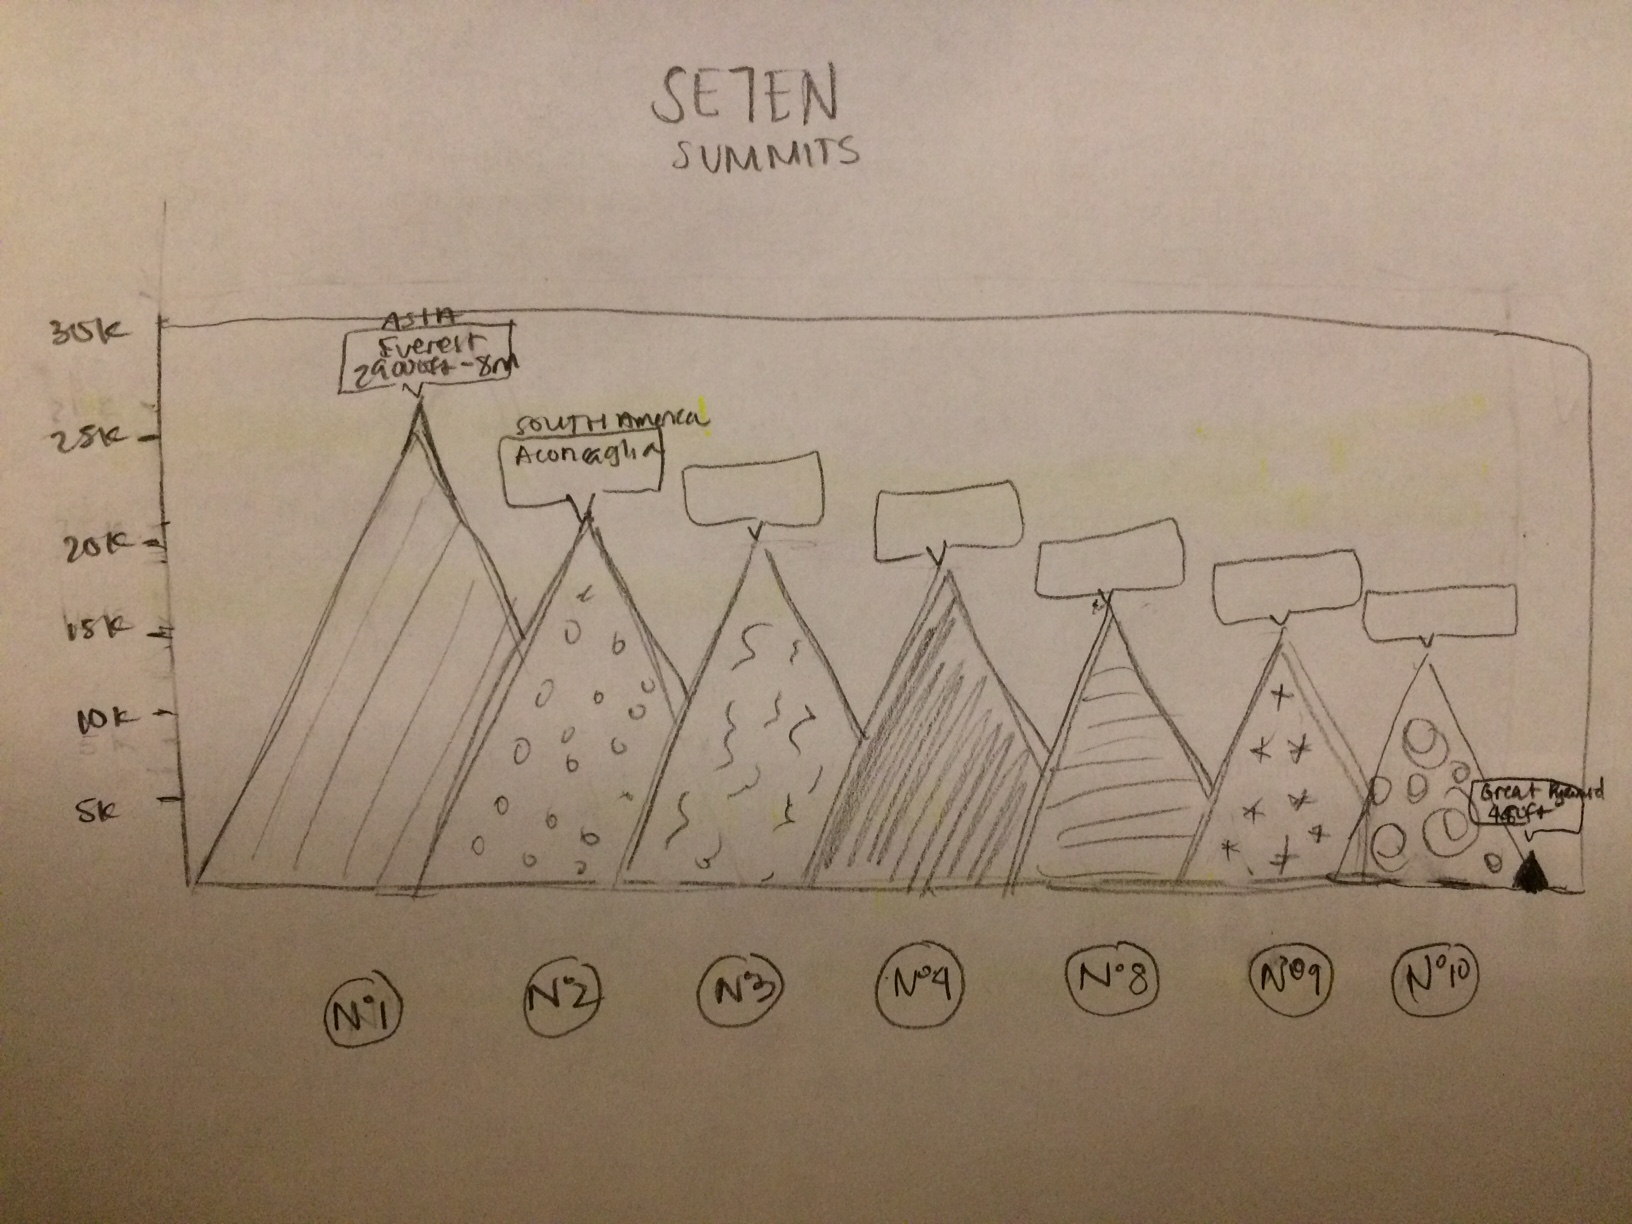 SE7EN
SUMMITS
30K
25K
20K
15K
10K
5K
ASIA
Everest
29000ft - 8m
SOUTH America
Aconcaglia
Great Pyramid
480ft
Nº1
Nº2
Nº3
Nº4
Nº8
Nº9
Nº10